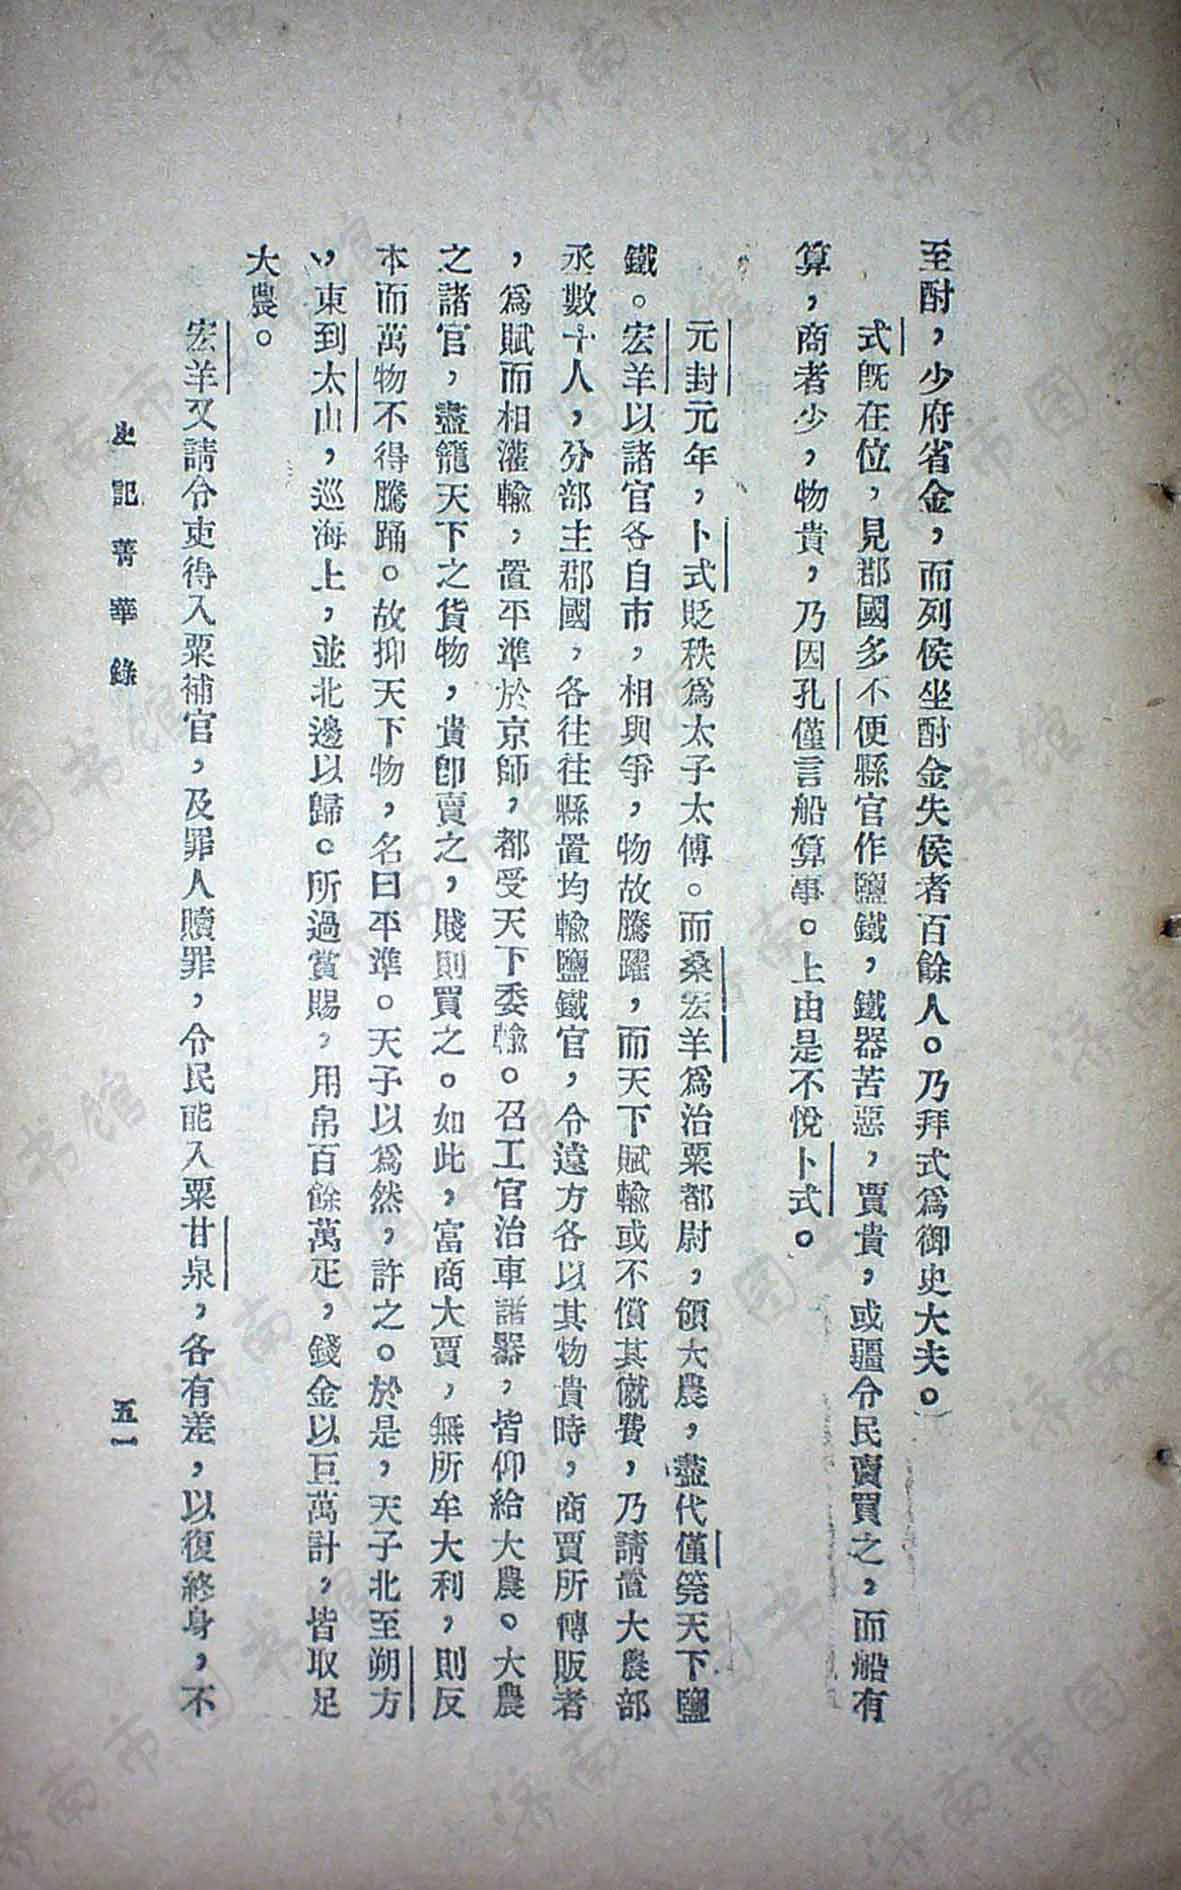 至酎，少府省金，而列侯坐酎金失侯者百餘人。乃拜式爲御史大夫。
式旣在位，見郡國多不便縣官作鹽鐵，鐵器苦惡，賈貴，或疆令民賣買之，而船有
算，商者少，物貴，乃因孔僅言船算事。上由是不悅卜式。
元封元年，卜式貶秩爲太子太傅。而桑宏羊爲治粟都尉，領大農，盡代僅筦天下鹽
鐵。宏羊以諸官各自市，相與爭，物故騰躍，而天下賦輸或不償其僦費，乃請置大農部
丞數十人，分部主郡國，各往往縣置均輸鹽鐵官，令遠方各以其物貴時，商賈所轉販者
，爲賦而相灌輸，置平準於京師，都受天下委輸。召工官治車諸器，皆仰給大農。大農
之諸官，盡籠天下之貨物，貴卽賣之，賤則買之。如此，富商大賈，無所牟大利，則反
本而萬物不得騰踊。故抑天下物，名曰平準。天子以爲然，許之。於是，天子北至朔方
，東到太山，巡海上，並北邊以歸。所過賞賜，用帛百餘萬疋，錢金以巨萬計，皆取足
大農。
宏羊又請令吏得入粟補官，及罪人贖罪，令民能入粟甘泉，各有差，以復終身，不
史記菁華錄
五一
济南市图书馆